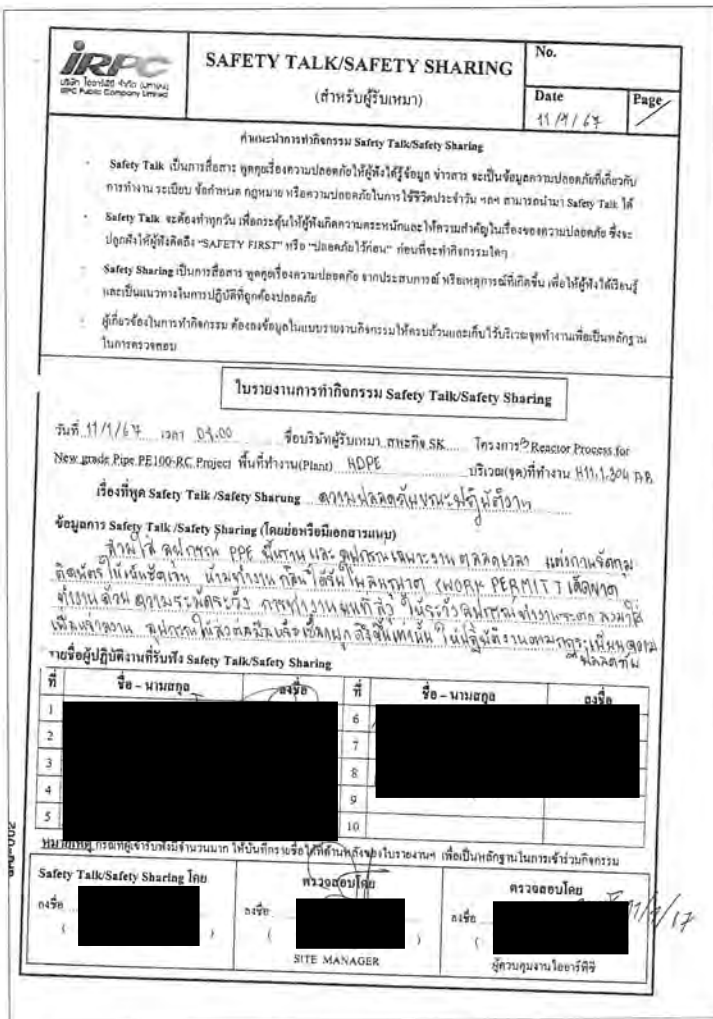 IRPC
บริษัท ไออาร์พีซี จำกัด (มหาชน)
IRPC Public Company Limited
SAFETY TALK/SAFETY SHARING
(สำหรับผู้รับเหมา)
No.
Date
Page
11/1/67
คำแนะนำการทำกิจกรรม Safety Talk/Safety Sharing
- Safety Talk เป็นการสื่อสาร พูดคุยเรื่องความปลอดภัยให้ผู้ฟังได้รู้ข้อมูล ข่าวสาร จะเป็นข้อมูลความปลอดภัยที่เกี่ยวกับ
การทำงาน ระเบียบ ข้อกำหนด กฎหมาย หรือความปลอดภัยในการใช้ชีวิตประจำวัน ฯลฯ สามารถนำมา Safety Talk ได้
- Safety Talk จะต้องทำทุกวัน เพื่อกระตุ้นให้ผู้ฟังเกิดความตระหนักและให้ความสำคัญในเรื่องของความปลอดภัย ซึ่งจะ
ปลูกฝังให้ผู้ฟังคิดถึง “SAFETY FIRST” หรือ “ปลอดภัยไว้ก่อน” ก่อนที่จะทำกิจกรรมใดๆ
- Safety Sharing เป็นการสื่อสาร พูดคุยเรื่องความปลอดภัย จากประสบการณ์ หรือเหตุการณ์ที่เกิดขึ้น เพื่อให้ผู้ฟังได้เรียนรู้
และเป็นแนวทางในการปฏิบัติที่ถูกต้องปลอดภัย
- ผู้เกี่ยวข้องในการทำกิจกรรม ต้องลงข้อมูลในแบบรายงานกิจกรรมให้ครบถ้วนและเก็บไว้บริเวณจุดทำงานเพื่อเป็นหลักฐาน
ในการตรวจสอบ
ใบรายงานการทำกิจกรรม Safety Talk/Safety Sharing
วันที่ 11/1/67 เวลา 09.00 ชื่อบริษัทผู้รับเหมา สหะกิจ SK โครงการ Reactor Process for
New grade Pipe PE100-RC Project พื้นที่ทำงาน(Plant) HDPE บริเวณ(จุด)ที่ทำงาน H11.1.304
เรื่องที่พูด Safety Talk /Safety Sharung ความปลอดภัยขณะปฏิบัติงาน
ข้อมูลการ Safety Talk /Safety Sharing (โดยย่อหรือมีเอกสารแนบ)
สวมใส่ อุปกรณ์ PPE พื้นฐาน และ อุปกรณ์เฉพาะงาน ตลอดเวลา แต่งกายรัดกุม
ติดบัตรให้เห็นชัดเจน ห้ามทำงาน ก่อนได้รับใบอนุญาต (WORK PERMIT) เด็ดขาด
ทำงานด้วย ความระมัดระวัง การทำงานบนที่สูง ให้ระวังอุปกรณ์ทำงานจะตก ลงมาใส่
เพื่อนร่วมงาน อุปกรณ์ให้ส่งต่อมือหรือเชือกผูก ดึงขึ้นเท่านั้น ให้ปฏิบัติงานตามกฎระเบียบความ
ปลอดภัย
รายชื่อผู้ปฏิบัติงานที่รับฟัง Safety Talk/Safety Sharing
ที่ ชื่อ – นามสกุล ลงชื่อ ที่ ชื่อ – นามสกุล ลงชื่อ
1 6
2 7
3 8
4 9
5 10
หมายเหตุ กรณีที่ผู้เข้ารับฟังมีจำนวนมาก ให้บันทึกรายชื่อได้ที่ด้านหลังของใบรายงานฯ เพื่อเป็นหลักฐานในการเข้าร่วมกิจกรรม
Safety Talk/Safety Sharing โดย
ลงชื่อ
( )
ตรวจสอบโดย
ลงชื่อ
( )
SITE MANAGER
ตรวจสอบโดย
ลงชื่อ
11/1/67
(
ผู้ควบคุมงานไออาร์พีซี